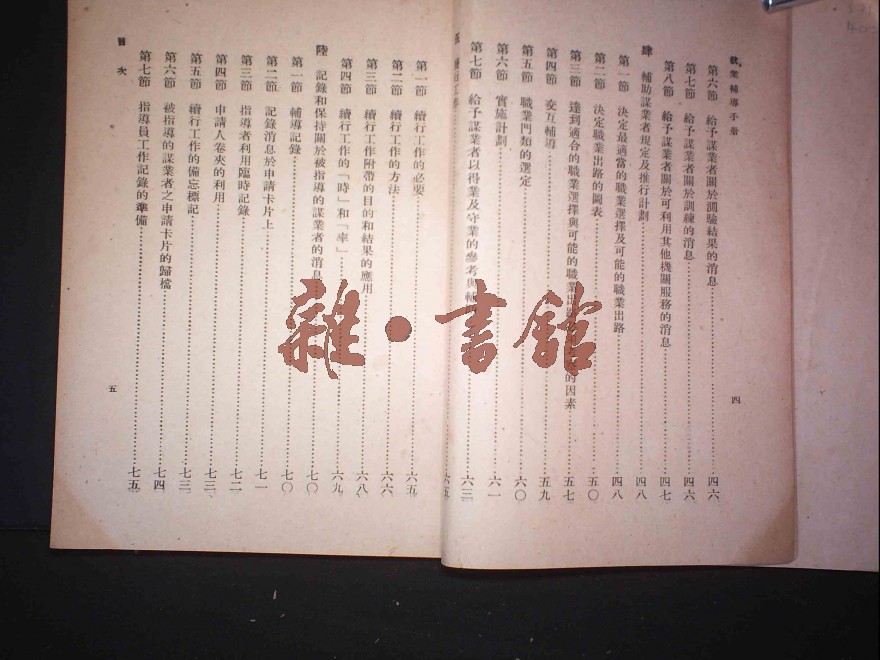 就業輔導手冊
四
第六節 給予謀業者關於測驗結果的消息 四六
第七節 給予謀業者關於訓練的消息 四六
第八節 給予謀業者關於可利用其他機關服務的消息 四七
肆 輔助謀業者規定及推行計劃 四八
第一節 決定最適當的職業選擇及可能的職業出路 四八
第二節 決定職業出路的圖表 五〇
第三節 達到適合的職業選擇與可能的職業出路 的因素 五七
第四節 交互輔導 五九
第五節 職業門類的選定 六〇
第六節 實施計劃 六一
第七節 給予謀業者以得業及守業的參考與輔 六三
續行工作 六五
第一節 續行工作的必要 六五
第二節 續行工作的方法 六六
第三節 續行工作附帶的目的和結果的應用 六八
第四節 續行工作的「時」和「率」 六九
陸 記錄和保持關於被指導的謀業者的消息 七〇
第一節 輔導記錄 七〇
第二節 記錄消息於申請卡片上 七一
第三節 指導者利用臨時記錄 七二
第四節 申請人卷夾的利用 七三
第五節 續行工作的備忘標記 七三
第六節 被指導的謀業者之申請卡片的歸檔 七四
第七節 指導員工作記錄的準備 七五
目次
五
雜·書館